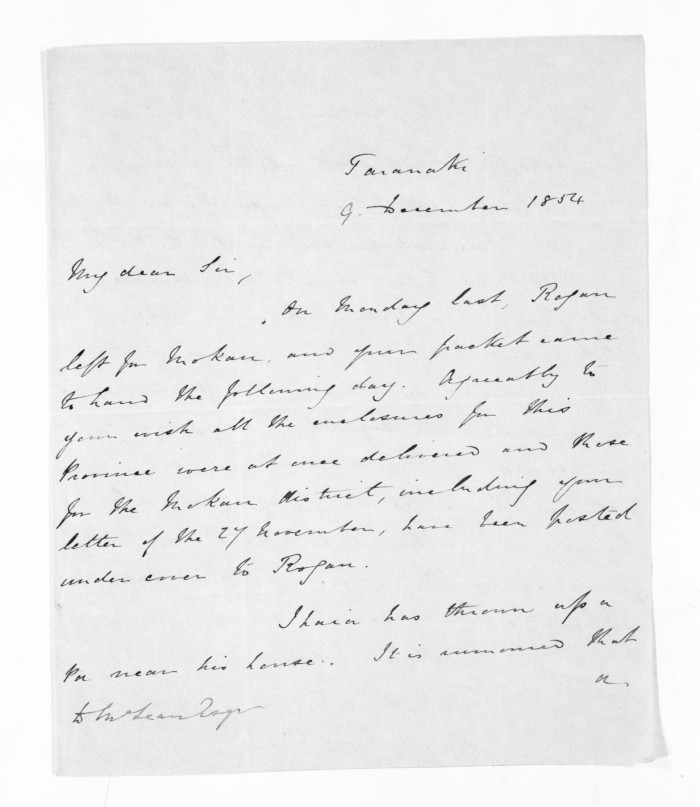 Taranaki
9. December 1854
My dear Sir,
On Monday last, Rogan
left for Mokau, and your packet came
to hand the following day. Agreeably to
your wish all the enclosures for this
Province were at once delivered and those
for the Mokau district, including your
letter of the 27 November, have been posted
under cover to Rogan.
Ihaia has thrown up a
Pa near his house. It is rumoured that
a
D McLean Esqr